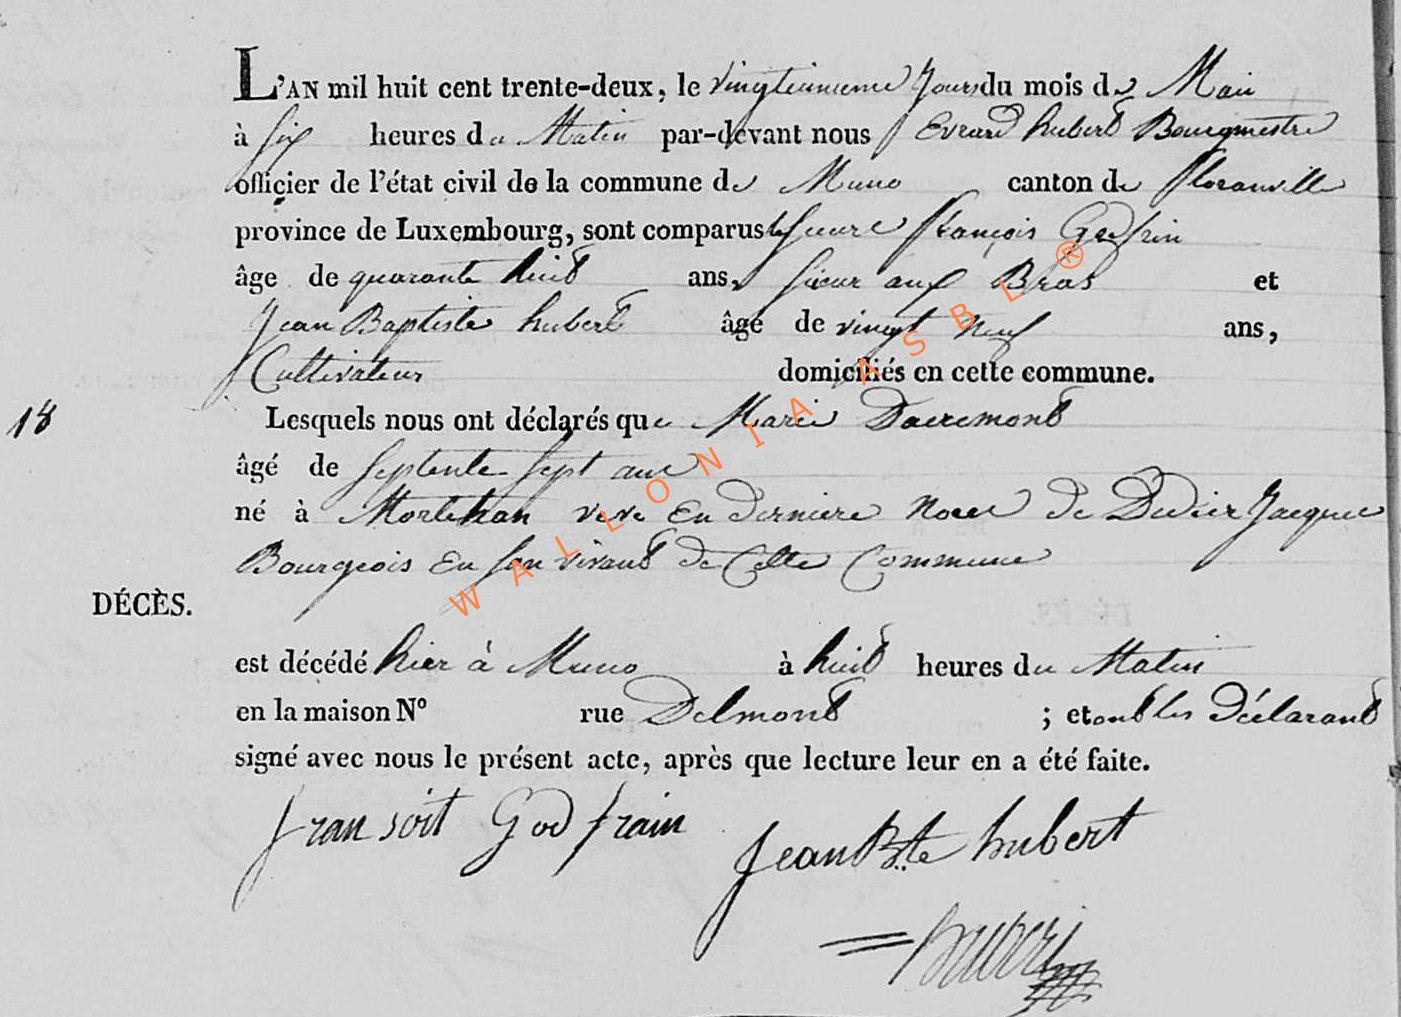 L'AN mil huit cent trente-deux, le vingtieumeme Jours du mois de Mai
à six heures du Matin par-devant nous Evrard hubert Bourgmestre
officier de l'état civil de la commune de Muno canton de Floranville
province de Luxembourg, sont comparus François Godfrin
âgé de quarante huit ans, sieur aux Bras et
Jean Baptiste hubert âgé de vingt neuf ans,
Cultivateur domiciliés en cette commune.
18
Lesquels nous ont déclarés que Marie Dacremont
âgé de septente sept ans
né à Mortehan veve En derniere Noces de Didier Jacques
Bourgeois En son vivant de Cette Commune
DÉCÈS.
est décédé hier à Muno à huit heures du Matin
en la maison N° rue Delmont ; et ont les Déclarant
signé avec nous le présent acte, après que lecture leur en a été faite.
fran soit God frain
Jean Bte hubert
hubert
WALLONIA ASBL ®